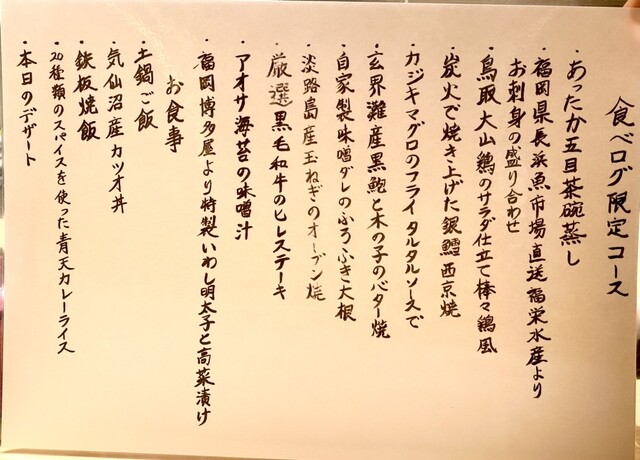 食べログ限定コース
・あったか五目茶碗蒸し
・福岡県長浜魚市場直送福栄水産より
お刺身の盛り合わせ
・鳥取大山鶏のサラダ仕立て棒々鶏風
・炭火で焼き上げた銀鱈西京焼
・カジキマグロのフライタルタルソースで
・玄界灘産黒鮑と木の子のバター焼
・自家製味噌ダレのふろふき大根
・淡路島産玉ねぎのオーブン焼
・厳選黒毛和牛のヒレステーキ
・アオサ海苔の味噌汁
・福岡博多屋より特製いわし明太子と高菜漬け
お食事
・土鍋ご飯
・気仙沼産カツオ丼
・鉄板焼飯
・20種類のスパイスを使った青天カレーライス
・本日のデザート